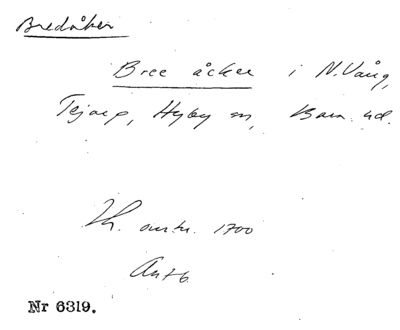 Bredåker
Bree åcker i N. Vång,
Tejarp, Hyby sn, Bara hd.
omkr. 1700
Nr 6319.